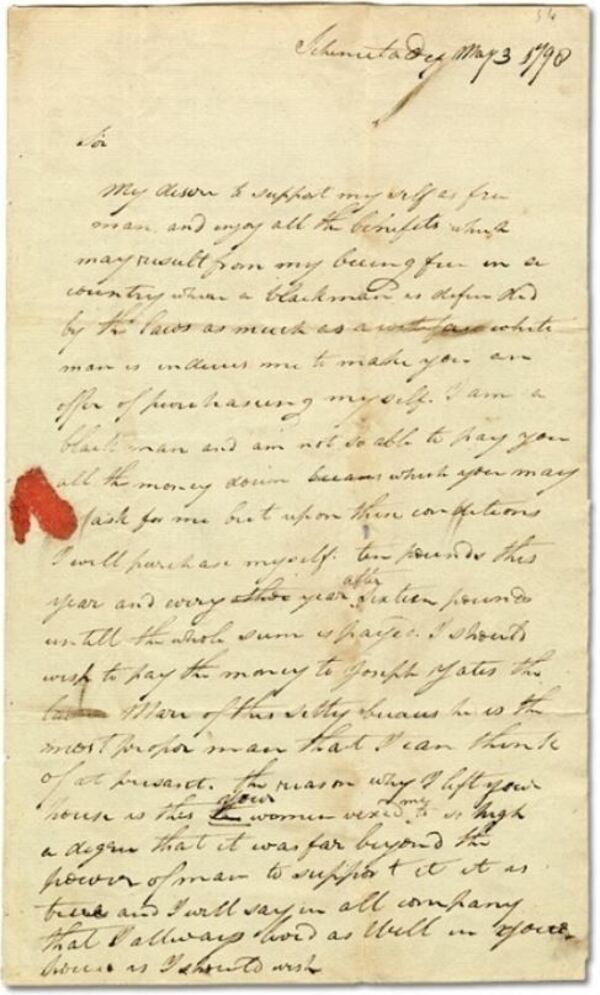 54
Schenectadey May 3 1798
Sir
My desire to support my self as free
man and enjoy all the benefits which
may result from my being free in a
country whear a blackman is defended
by the laws as much as a white
man is induces me to make you an
offer of purchasing myself. I am a
black man and am not so able to pay you
all the money down which you may
ask for me but upon these conditions
I will purchase myself. ten pounds this
year and every year after sixteen pounds
untill the whole sum is payed. I should
wish to pay the money to Joseph Yates the
Mare of this sitty becaus he is the
most propor man that I can think
of at presant. the reason why I left your
house is this your women vexed me to so high
a degree that it was far beyond the
power of man to support it it is
true and I will say in all company
that I allways lived as well in your
house as I should wish